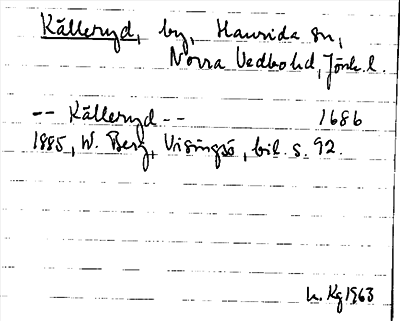 Källeryd, by, Haurida sn,
Norra Vedbo hd, Jönk. l.
-- Källeryd -- 1686
1885, W. Berg, Visingsö, bil. s. 92.
Kg 1963